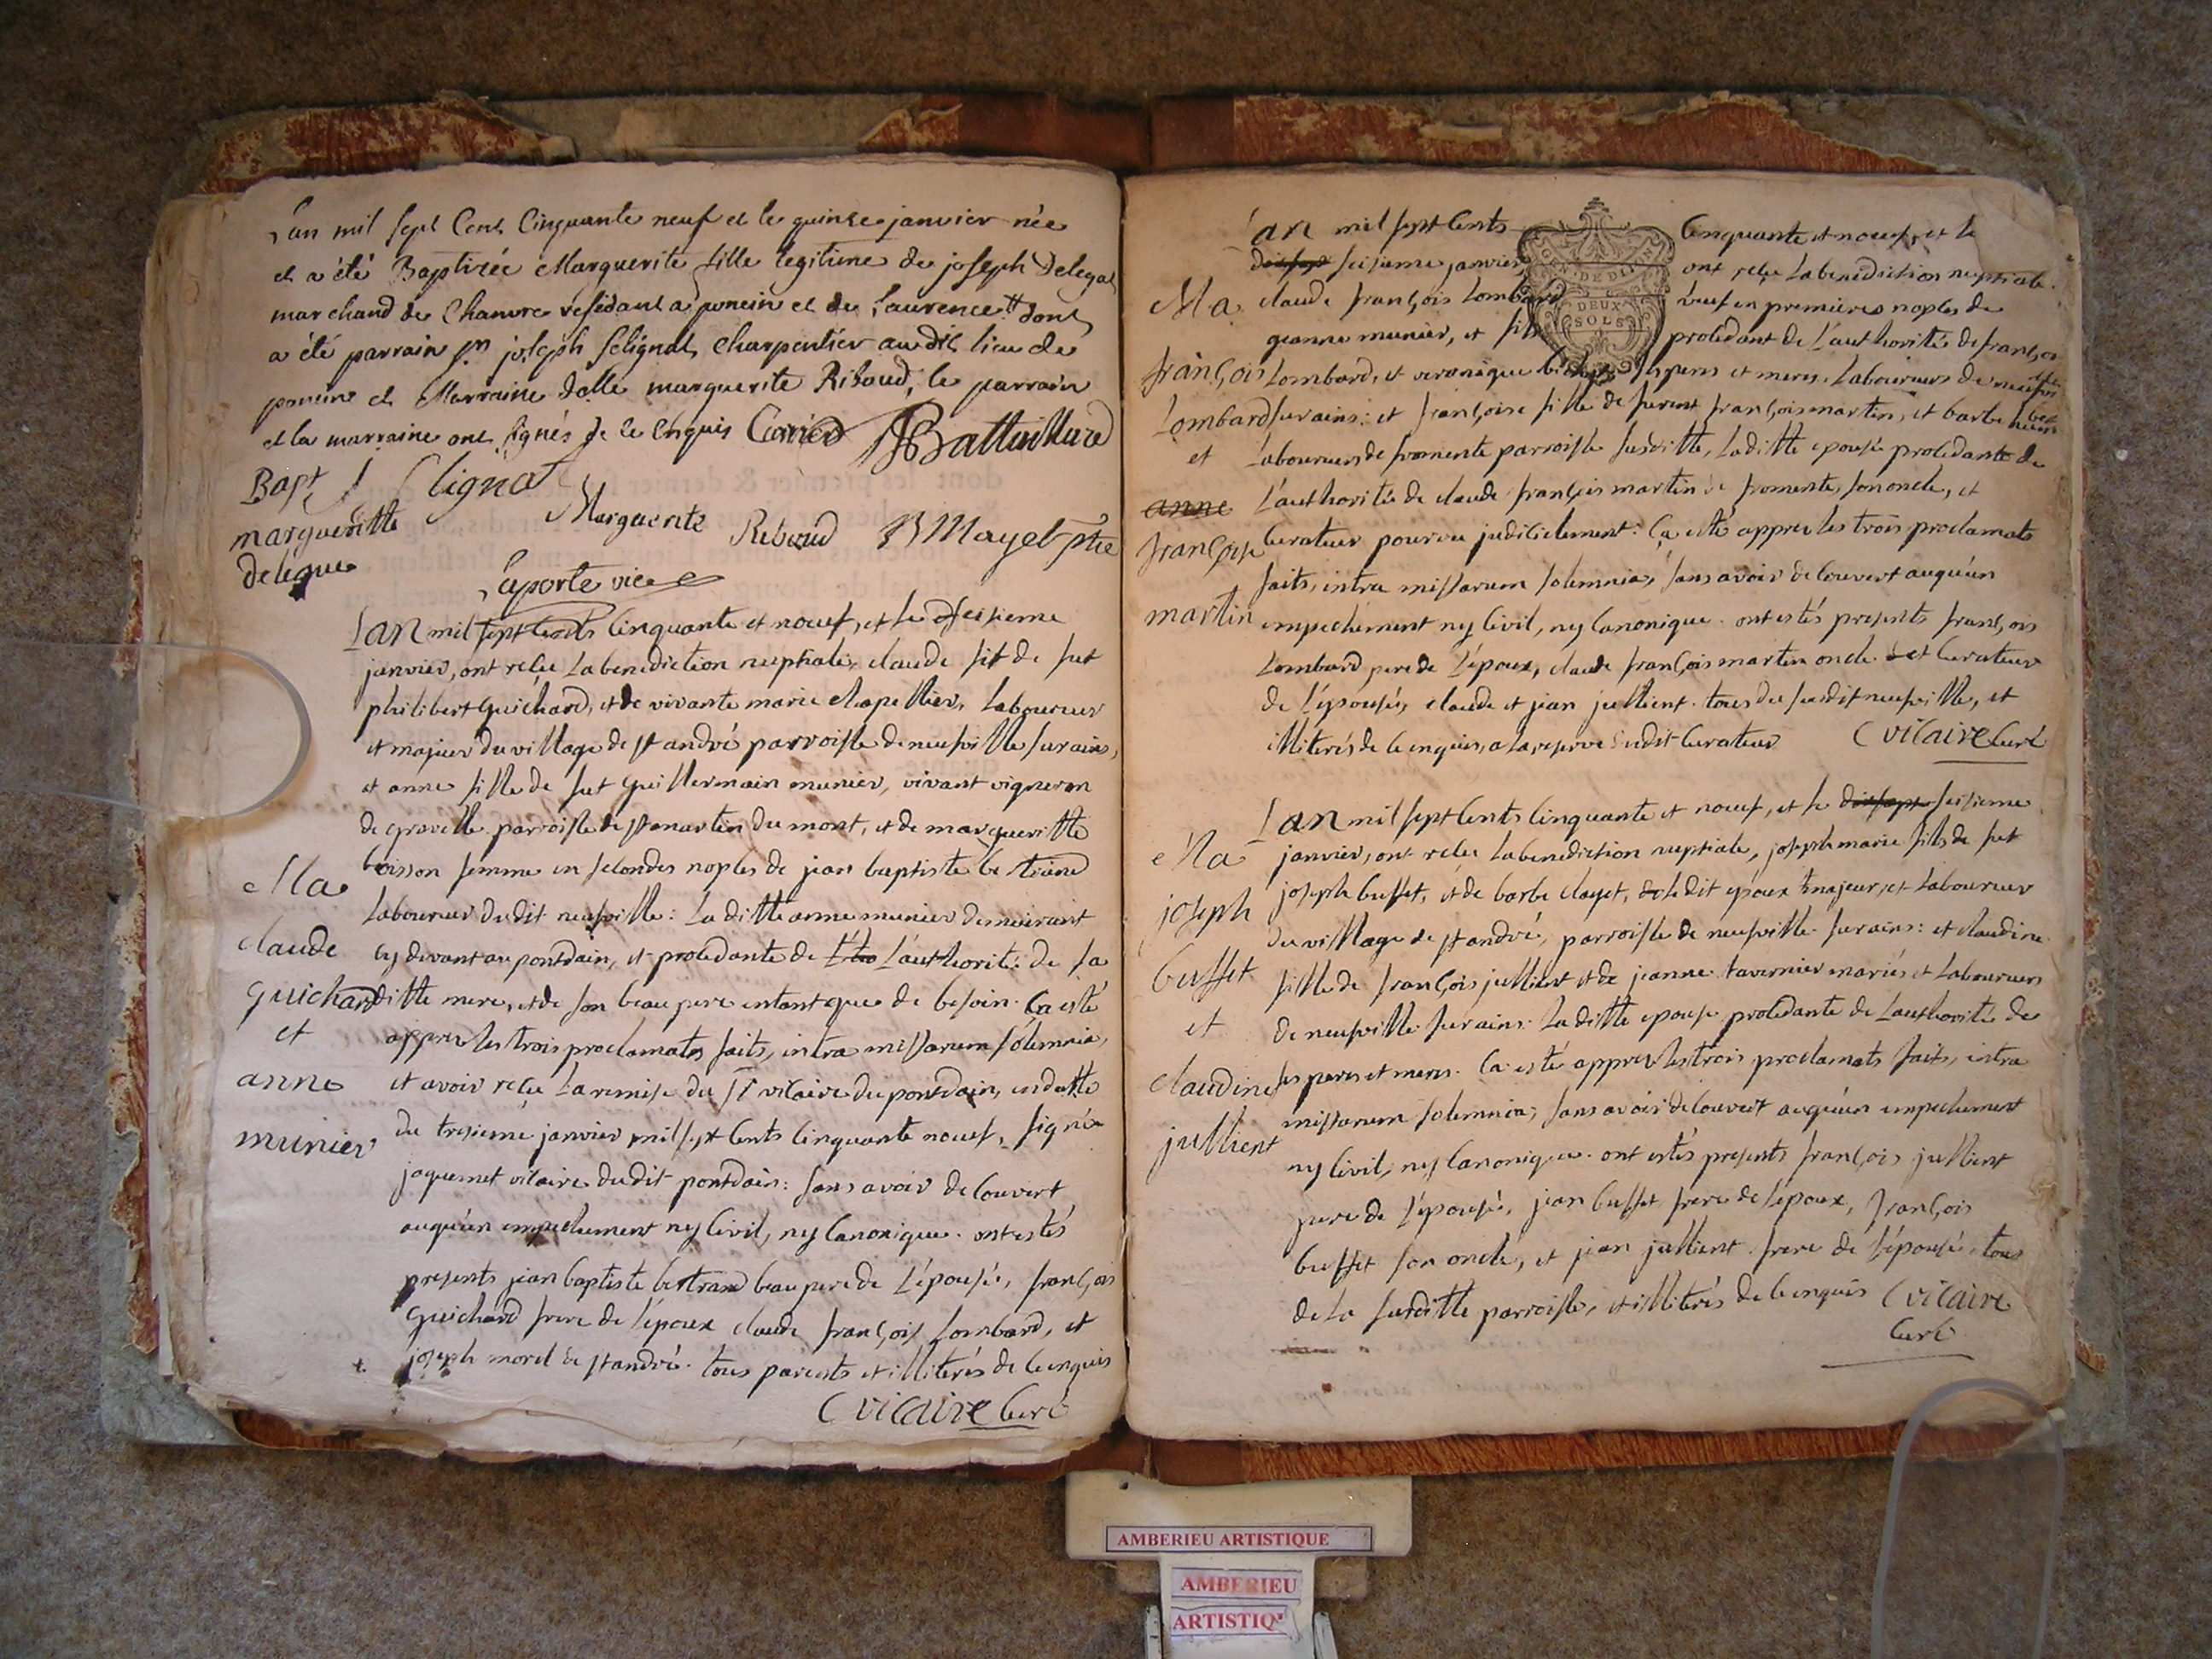 L'an mil sept Cent Cinquante neuf et le quinze janvier née
et a été Baptizée Marguerite fille legitime de joseph Delegas
marchand de Chanvre residant a poncin et de Laurence dont
a été parrain joseph Selignat Charpentier audit lieu de
poncin et Marraine delle marguerite Ribaud, le parrain
et la marraine ont signés de ce Enquis
Bapt
margueritte
delegue
Selignat
Marguerite Ribaud B Mayet ptre
Laporte vice
Lan mil sept Cents Cinquante et noeuf, et le seisieme
janvier, ont reçu La benediction nuptiale, claude fils de fut
philibert guichard, et de vivante marie chapellier, Laboureur
et majeur du village de st andré parroisse de neufville sur ains,
et anne fille de fut guillermain munier, vivant vigneron
de gravelle parroisse de st martin du mont, et de margueritte
boisson femme en secondes nopces de jean baptiste bertrand
Laboureur dudit neufville: La ditte anne munier demeurant
cy devant au pontdain, et procedante de L'authorité de sa
ditte mere, et de son beau pere entant que de besoin. Ca esté
appres les trois proclamats faits, intra missarum solemnia,
et avoir reçu La remise du Sr vicaire du pontdain, en datte
du tresieme janvier mil sept Cents Cinquante noeuf, signée
jaquemet vicaire dudit pontdain: sans avoir decouvert
auqu'un empechement ny Civil, ny Canonique. ont estés
presents jean baptiste bertrand beau pere de L'épousée, françois
guichard frere de l'époux claude françois Lombard, et
joseph morel de st andré. tous parents et illiterés de ce enquis
C vicaire Curé
Ma
claude
guichard
et
anne
munier
Lan mil sept Cents Cinquante et noeuf, et le
seisieme janvier, ont reçu La benediction nuptiale.
claude françois Lombard veuf en premieres nopces de
jeanne munier, et fils procedant de L'authorité de françois
Lombard, et veronique ses peres et meres, Laboureurs de neufville
sur ains: et françoise fille de furent françois martin, et barbe
Laboureurs de fromente parroisse susditte, Laditte epousée procedante de
L'authorité de claude françois martin de fromente, son oncle, et
Curateur pourvu judiciellement: Ca esté appres les trois proclamats
faits, intra missarum solemnia, sans avoir decouvert auqu'un
empechement ny Civil, ny Canonique. ont estés presents françois
Lombard pere de L'époux, claude françois martin oncle et Curateur
de L'épousée, claude et jean jullient. tous du susdit neufville, et
illiterés de ce enquis, a la reserve dudit Curateur C vicaire Curé
Ma
françois
Lombard
et
anne
françoise
martin
GEN. DE DIJON
DEUX
SOLS
Lan mil sept Cents Cinquante et noeuf, et le dixsept seisieme
janvier, ont reçu La benediction nuptiale, joseph marie fils de fut
joseph buffet, et de barbe clayet, ledit époux majeur, et Laboureur
du village de st andré, parroisse de neufville sur ains: et claudine
fille de françois jullient et de jeanne tavernier mariés et Laboureurs
de neufville sur ains. La ditte epouse procedante de L'authorité de
ses peres et meres. Ca esté appres les trois proclamats faits, intra
missarum solemnia, sans avoir decouvert auqu'un empechement
ny Civil, ny Canonique. ont estés presents françois jullient
pere de l'épousée, jean buffet frere de l'époux, françois
buffet son oncle, et jean jullient frere de l'épousée, tous
de La susditte parroisse, et illiterés de ce enquis C vicaire
Curé
Ma
joseph
buffet
et
claudine
jullient
AMBERIEU ARTISTIQUE
AMBERIEU
ARTISTIQ